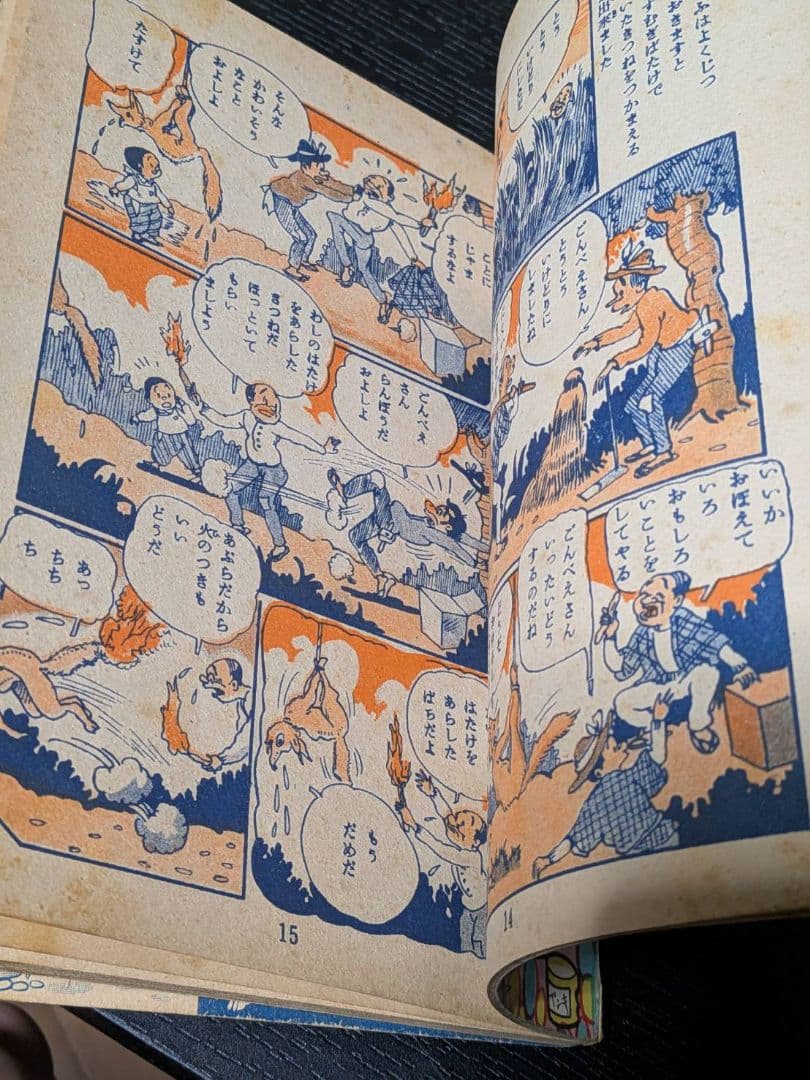 ふはよくじつ
おきますと
すむぎばたけで
いたきつねをつかまえる
出来ました
とう
とう
いけどり
ごんべえさん
とうとう
いけどりに
しましたね
いいか
おぼえて
いろ
おもしろ
いことを
してやる
ごんべえさん
いったいどう
するのだね
14
じゃま
するなよ
そんな
かわいそう
なこと
およしよ
たすけて
ごんべえ
さん
らんぼうだ
およしよ
わしのはたけ
をあらした
きつねだ
ほっといて
もらい
ましょう
はたけを
あらした
ばちだよ
もう
だめだ
あぶらだから
火のつきも
いい
どうだ
あっ
ちち
ち
15